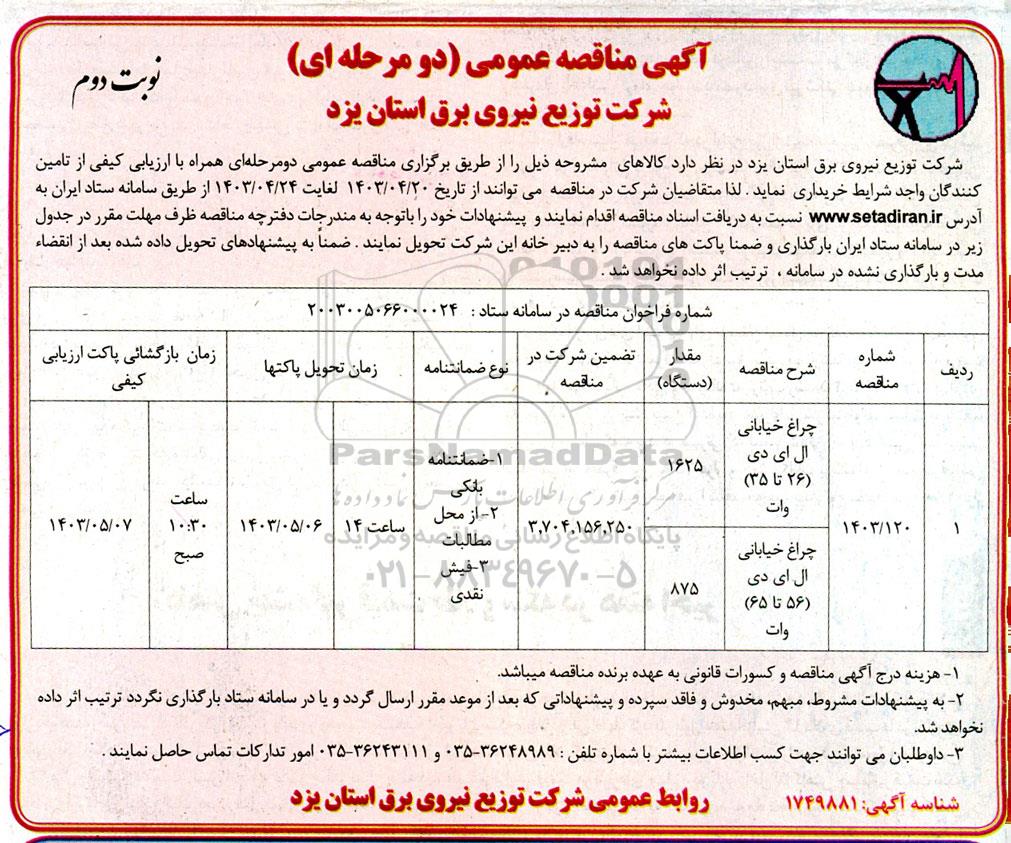 آگهی مناقصه عمومی (دو مرحله ای)
نوبت دوم
شرکت توزیع نیروی برق استان یزد
شرکت توزیع نیروی برق استان یزد در نظر دارد کالاهای مشروحه ذیل را از طریق برگزاری مناقصه عمومی دومرحله‌ای همراه با ارزیابی کیفی از تامین
کنندگان واجد شرایط خریداری نماید . لذا متقاضیان شرکت در مناقصه می توانند از تاریخ ۱۴۰۳/۰۴/۲۰ لغایت ۱۴۰۳/۰۴/۲۴ از طریق سامانه ستاد ایران به
آدرس www.setadiran.ir نسبت به دریافت اسناد مناقصه اقدام نمایند و پیشنهادات خود را باتوجه به مندرجات دفترچه مناقصه ظرف مهلت مقرر در جدول
زیر در سامانه ستاد ایران بارگذاری و ضمنا پاکت های مناقصه را به دبیر خانه این شرکت تحویل نمایند . ضمناً به پیشنهادهای تحویل داده شده بعد از انقضاء
مدت و بارگذاری نشده در سامانه ، ترتیب اثر داده نخواهد شد .
شماره فراخوان مناقصه در سامانه ستاد : ۲۰۰۳۰۰۵۰۶۶۰۰۰۰۲۴
ردیف
شماره
مناقصه
شرح مناقصه
مقدار
(دستگاه)
تضمین شرکت در
مناقصه
نوع ضمانتنامه
زمان تحویل پاکتها
زمان بازگشائی پاکت ارزیابی
کیفی
۱
۱۴۰۳/۱۲۰
چراغ خیابانی
ال ای دی
(۲۶ تا ۳۵)
وات
۱۶۲۵
چراغ خیابانی
ال ای دی
(۵۶ تا ۶۵)
وات
۸۷۵
۳,۷۰۴,۱۵۶,۲۵۰
۱-ضمانتنامه
بانکی
۲-از محل
مطالبات
۳-فیش
نقدی
ساعت ۱۴
۱۴۰۳/۰۵/۰۶
ساعت
۱۰:۳۰
صبح
۱۴۰۳/۰۵/۰۷
ParsNamadData
مرکز فرآوری اطلاعات پارس نماد داده ها
پایگاه اطلاع رسانی مناقصه و مزایده
۰۲۱-۸۸۳۴۹۶۷۰-۵
۱- هزینه درج آگهی مناقصه و کسورات قانونی به عهده برنده مناقصه میباشد.
۲- به پیشنهادات مشروط، مبهم، مخدوش و فاقد سپرده و پیشنهاداتی که بعد از موعد مقرر ارسال گردد و یا در سامانه ستاد بارگذاری نگردد ترتیب اثر داده
نخواهد شد.
۳- داوطلبان می توانند جهت کسب اطلاعات بیشتر با شماره تلفن : ۳۶۲۴۸۹۸۹-۰۳۵ و ۳۶۲۴۳۱۱۱-۰۳۵ امور تدارکات تماس حاصل نمایند .
روابط عمومی شرکت توزیع نیروی برق استان یزد
شناسه آگهی: ۱۷۴۹۸۸۱